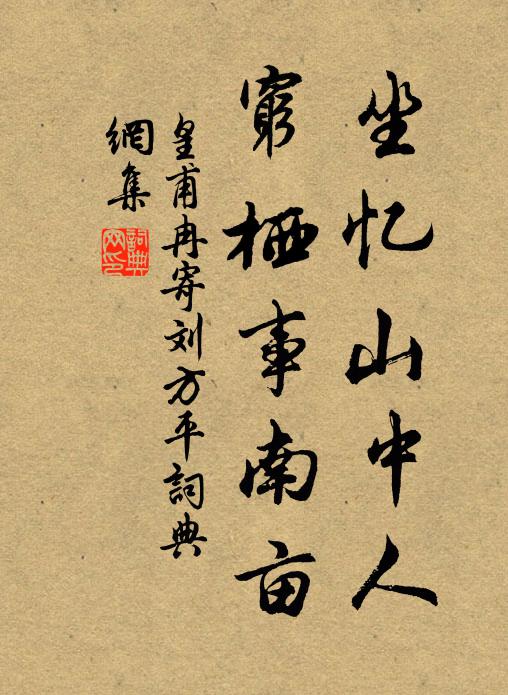 坐忆山中人
穷栖事南亩
皇甫冉寄刘方平詞典
網集
詞典
网印